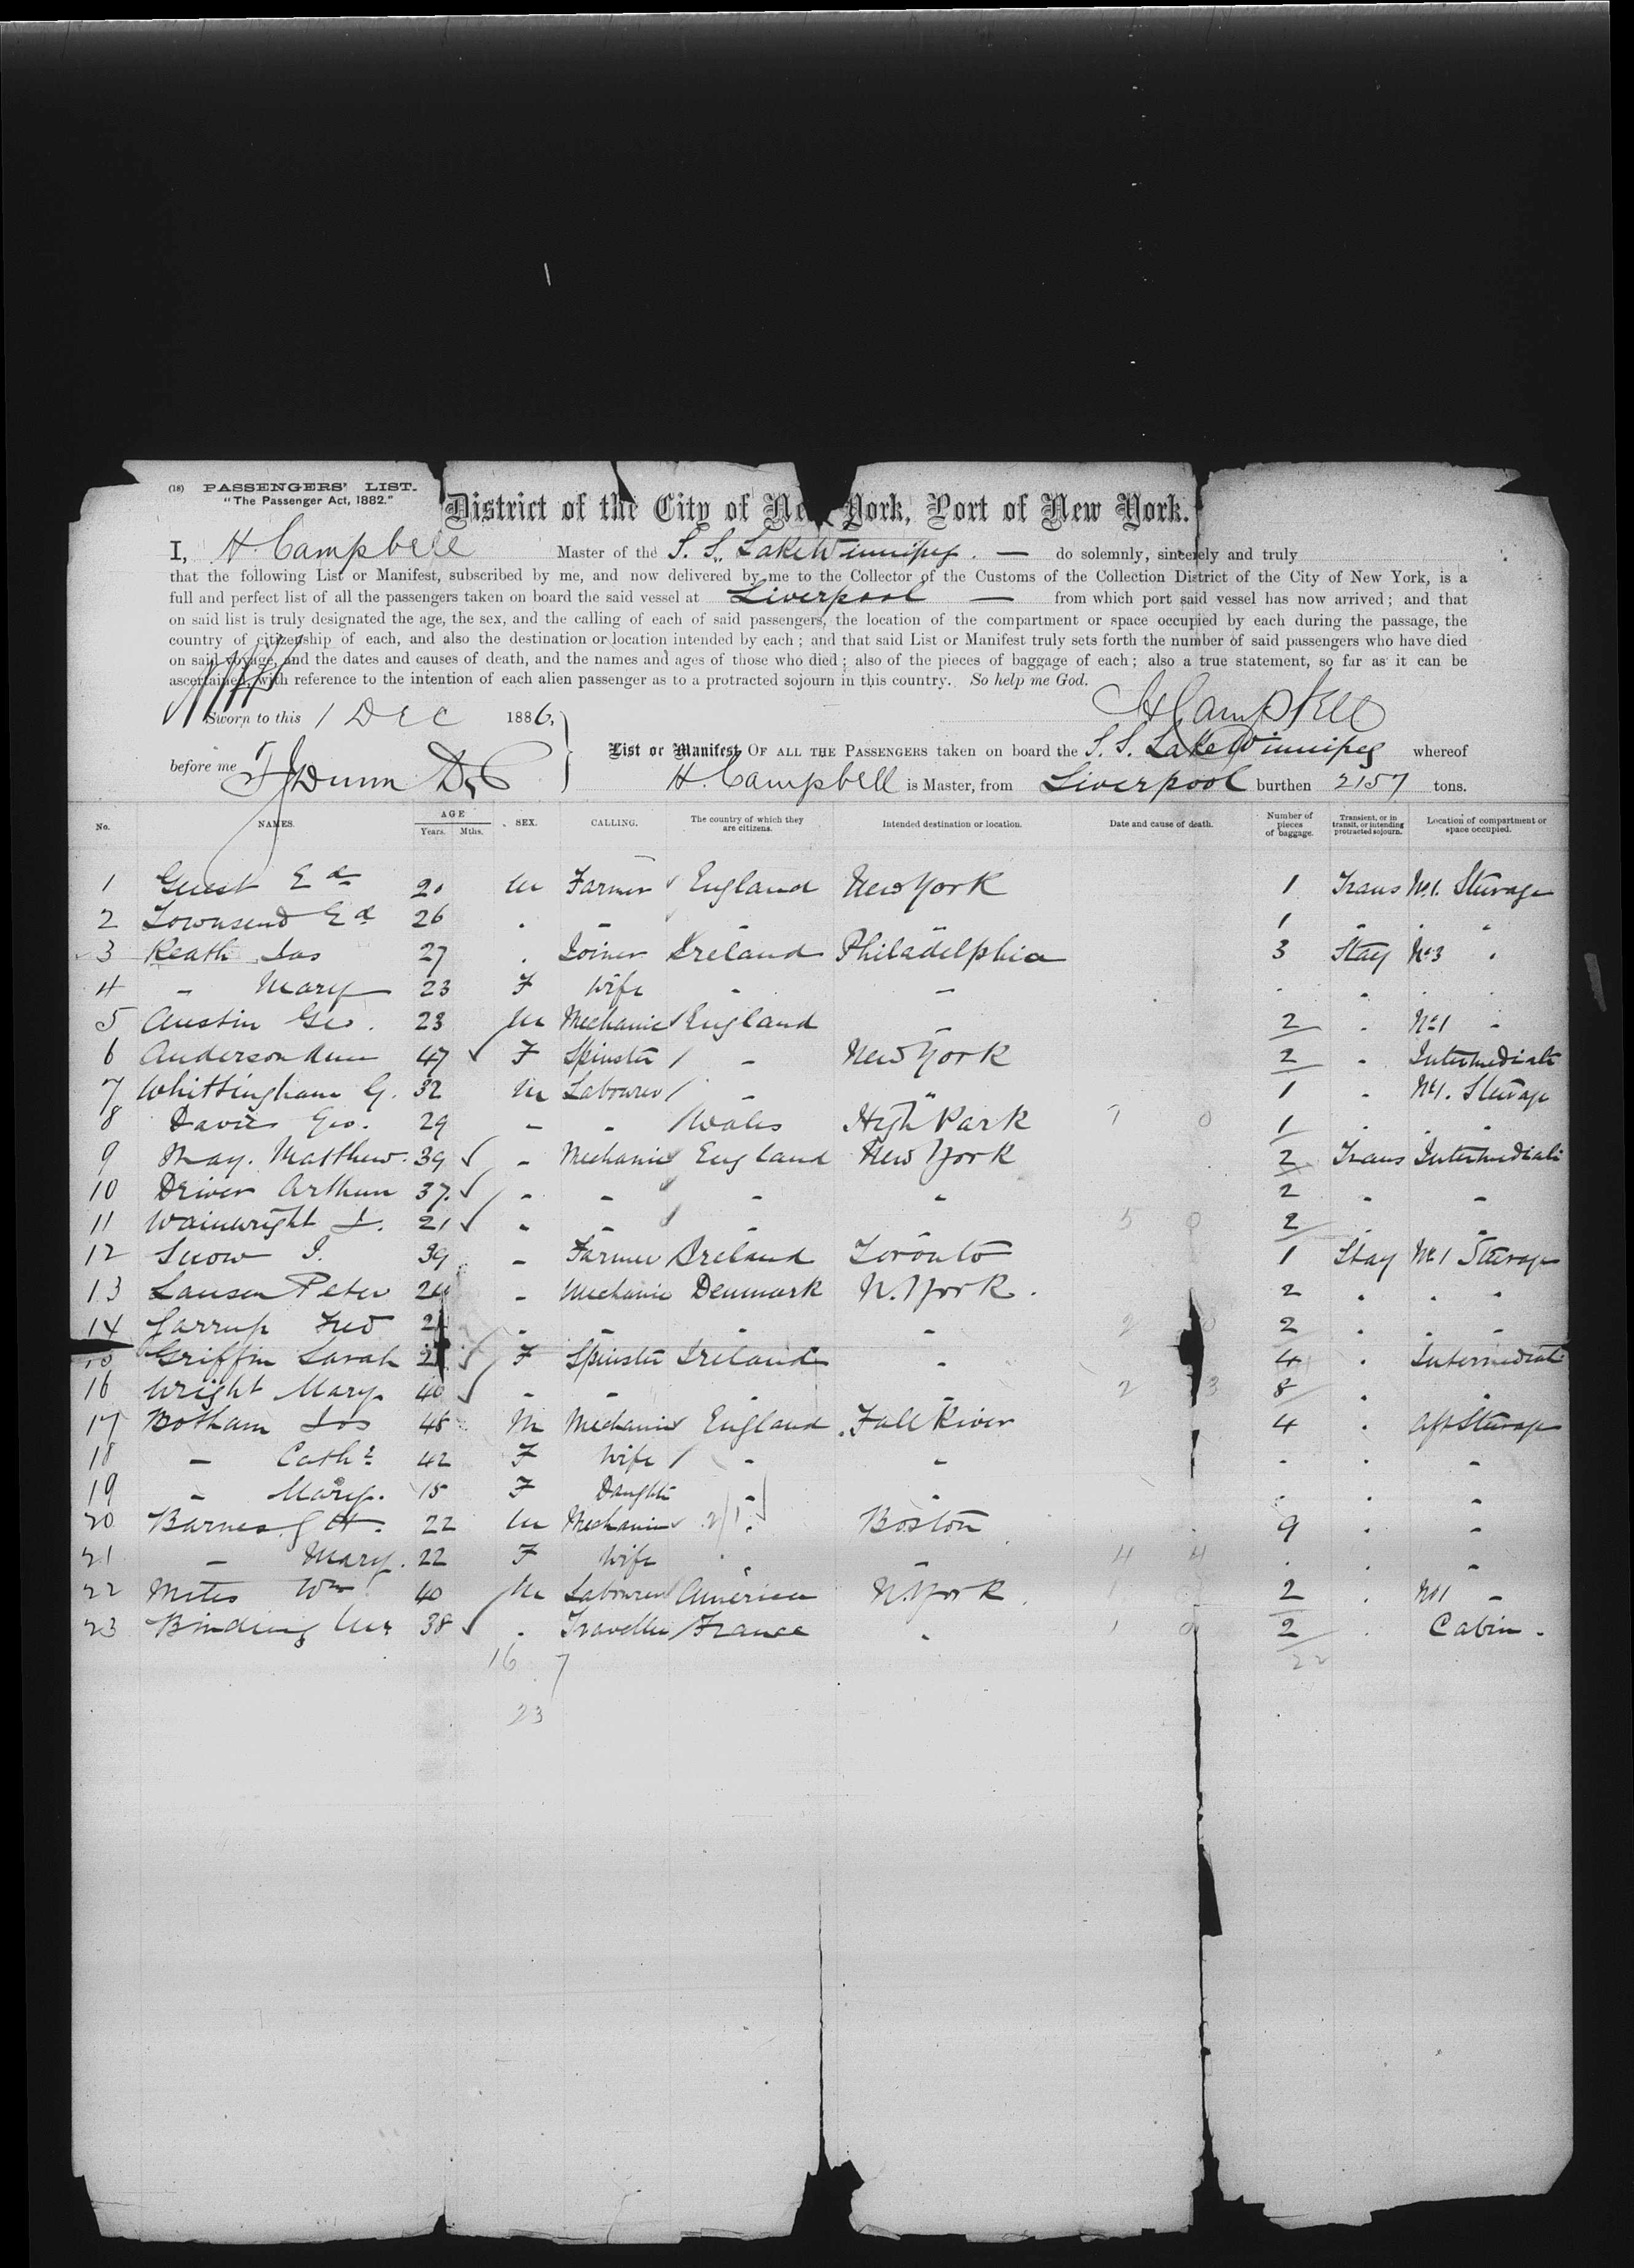 (18) PASSENGERS' LIST.
"The Passenger Act, 1882."
District of the City of New York, Port of New York.
I, H. Campbell Master of the S. S. Lake Winnipeg. — do solemnly, sincerely and truly
that the following List or Manifest, subscribed by me, and now delivered by me to the Collector of the Customs of the Collection District of the City of New York, is a
full and perfect list of all the passengers taken on board the said vessel at Liverpool — from which port said vessel has now arrived; and that
on said list is truly designated the age, the sex, and the calling of each of said passengers, the location of the compartment or space occupied by each during the passage, the
country of citizenship of each, and also the destination or location intended by each; and that said List or Manifest truly sets forth the number of said passengers who have died
on said voyage, and the dates and causes of death, and the names and ages of those who died; also of the pieces of baggage of each; also a true statement, so far as it can be
ascertained, with reference to the intention of each alien passenger as to a protracted sojourn in this country. So help me God.
H Campbell
Sworn to this 1 Dec 1886,
before me Dunn
List or Manifest OF ALL THE PASSENGERS taken on board the S. S. Lake Winnipeg whereof
H. Campbell is Master, from Liverpool burthen 2157 tons.
No. NAMES. AGE Years. Mths. SEX. CALLING. The country of which they are citizens. Intended destination or location. Date and cause of death. Number of pieces of baggage. Transient, or in transit, or intending protracted sojourn. Location of compartment or space occupied.
1 Guest Ed 20 M Farmer England New York 1 Trans No 1. Steerage
2 Townsend Ed 26 . - - - 1 - . "
3 Keath Jas 27 . Joiner Ireland Philadelphia 3 Stay No 3 .
4 - Mary 23 F Wife - - - . . .
5 Austin Geo. 23 M Mechanic England - 2 . No 1 -
6 Anderson Ann 47 F Spinster - New York 2 - Intermediate
7 Whittingham G. 32 M Labourer - " 1 - No 1. Steerage
8 Davies Geo. 29 - - Wales High Park 7 0 1 - . -
9 May. Matthew. 39 - Mechanic England New York 2 Trans Intermediate
10 Driver Arthur 37. - - - - 2 - -
11 Wainwright J. 21 - - - - 5 0 2 . -
12 Snow J. 39 - Farmer Ireland Toronto 1 Stay No 1 Steerage
13 Lausen Peter 24 - Mechanic Denmark N. York. 2 . . -
14 Garrup Fred - - - - 2 . . -
15 Griffin Sarah F Spinster Ireland - 4 . Intermediate
16 Wright Mary 40 - - - - 2 3 8 . -
17 Botham Jos 48 M Mechanic England Fall River 4 . Aft Steerage
18 - Cath 42 F Wife - - - . -
19 - Mary. 15 F Daughter - - . . -
20 Barnes G H. 22 M Mechanic . Boston 9 . -
21 - Mary. 22 F Wife . - 4 4 . . -
22 Wm 40 M Labourer America N. York. 2 . No 1 -
23 Binding 38 . Traveller France - 1 0 2 . Cabin.
16 7 22
23